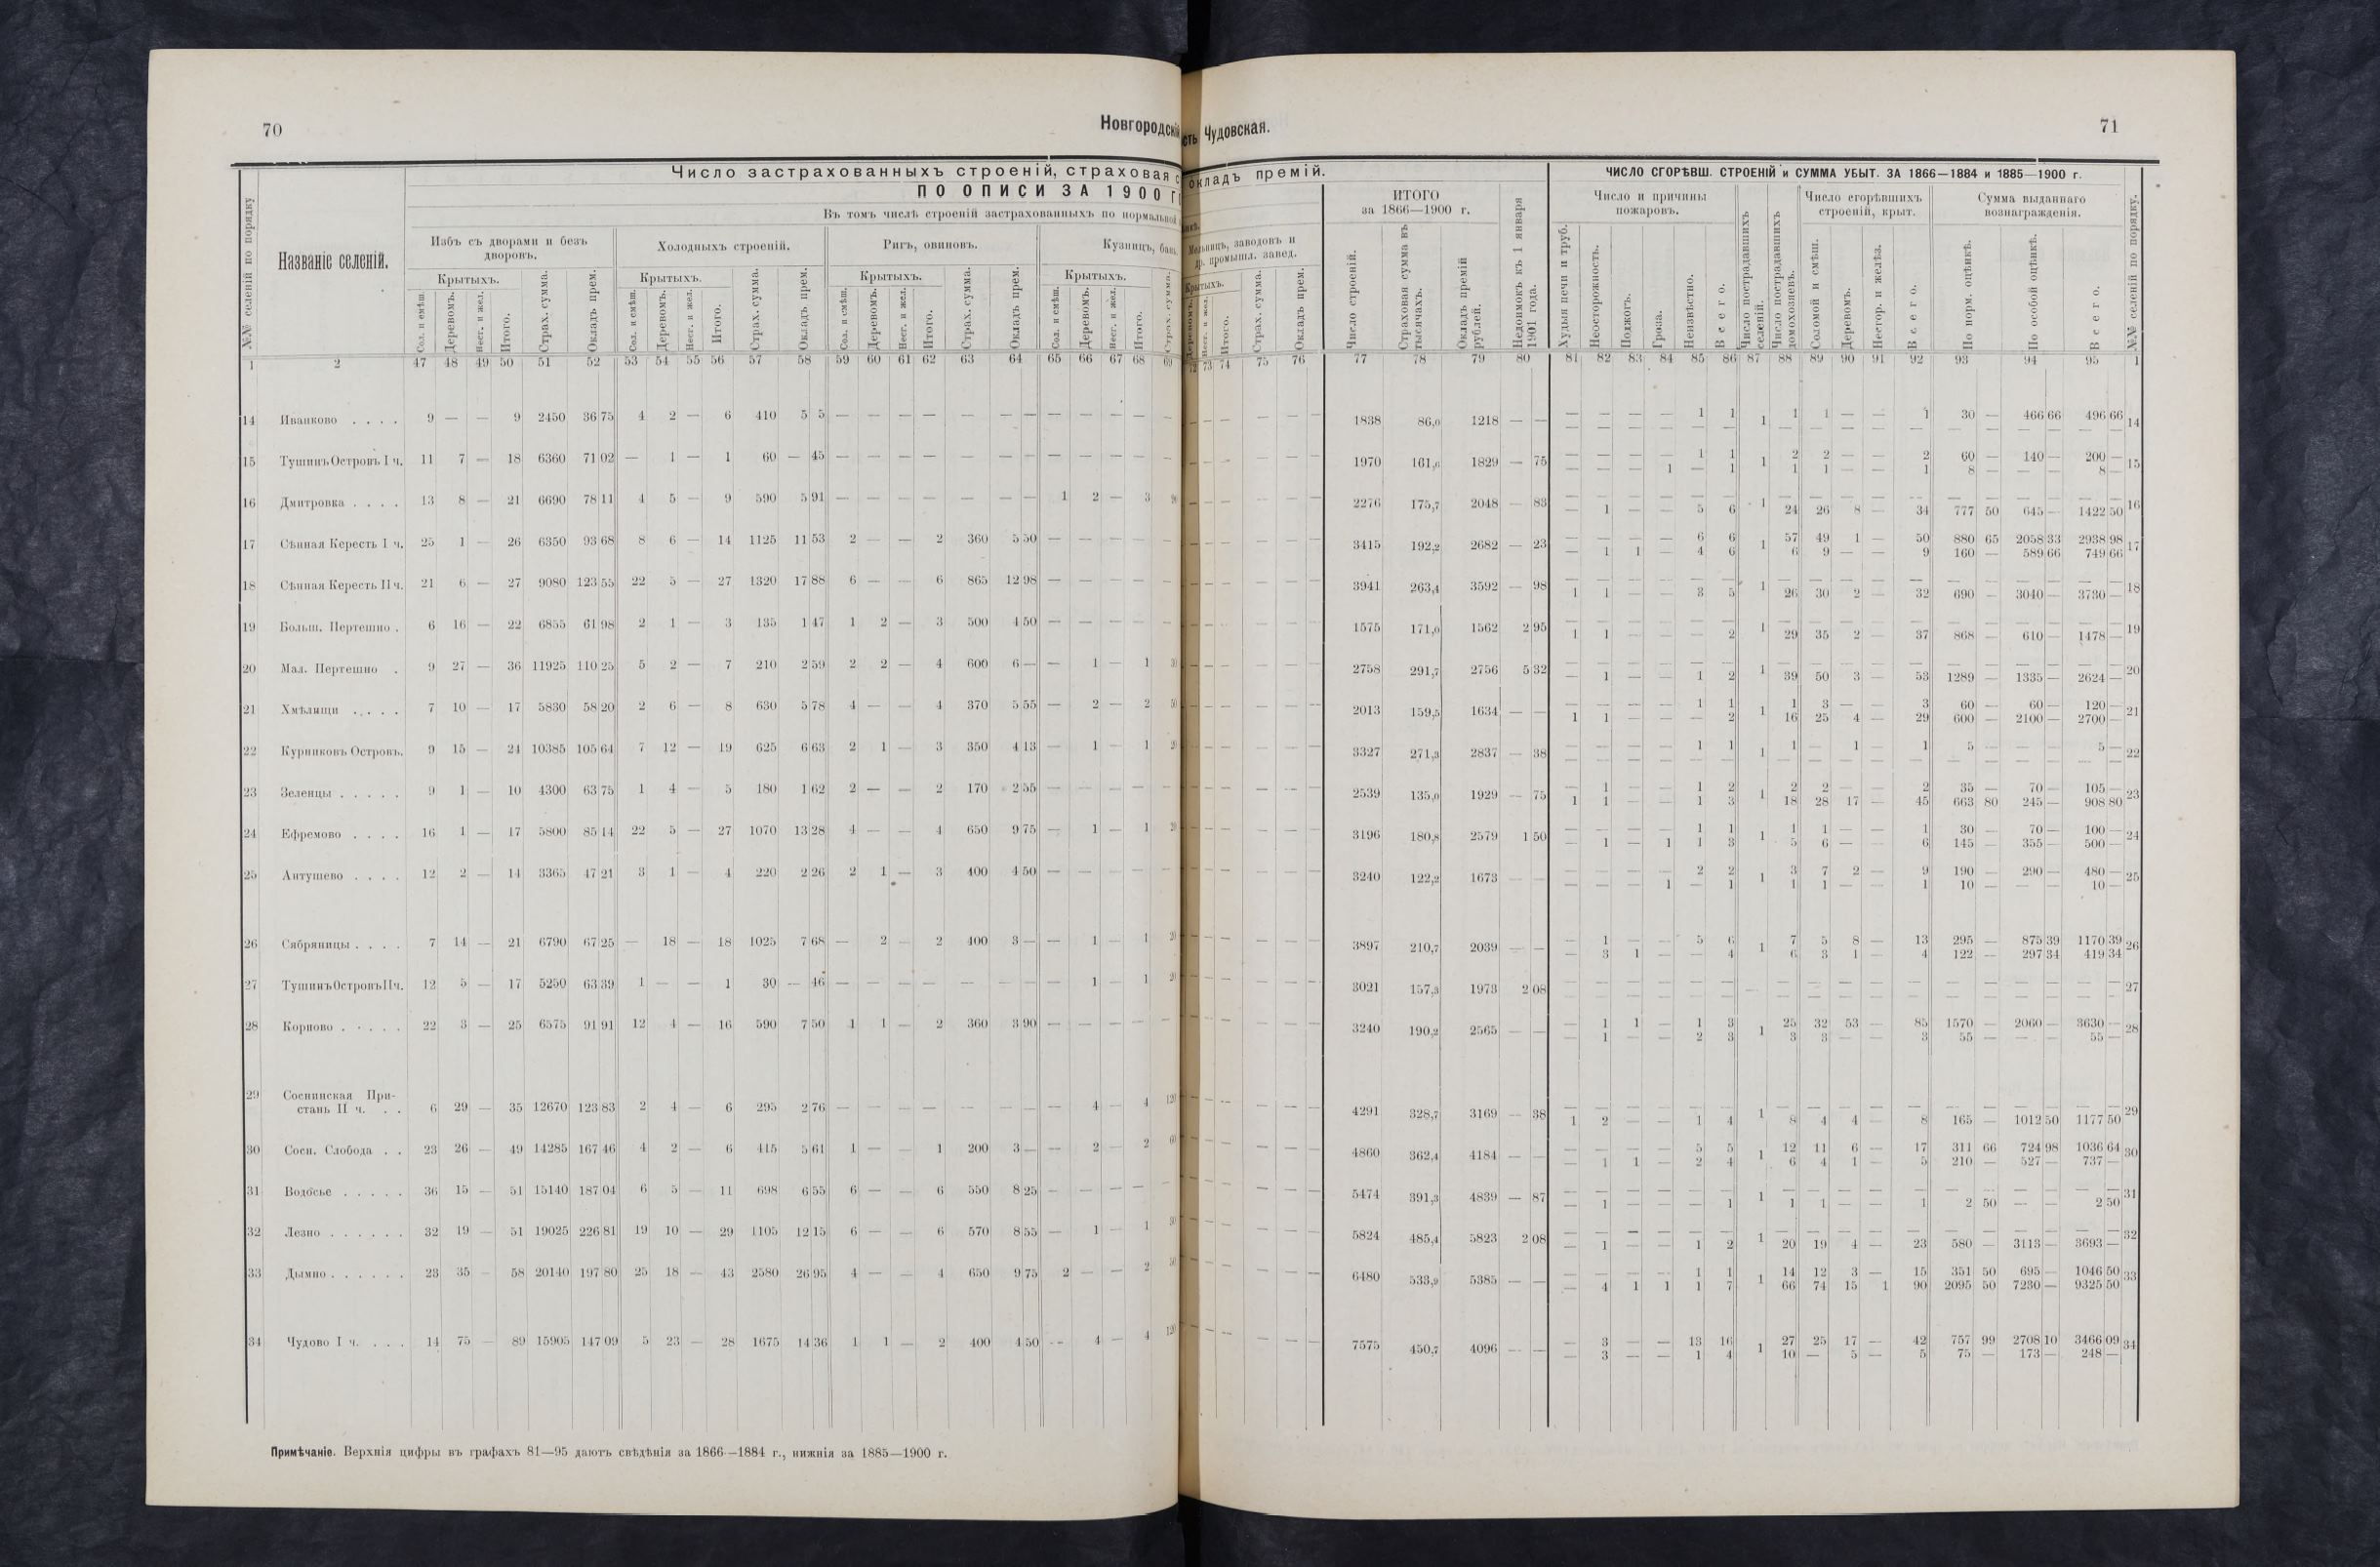 70
Новгородскі
Число застрахованныхъ строеній, страховая с
ПО ОПИСИ ЗА 1900 Г
Въ томъ числѣ строеній застрахованныхъ по нормальной
№№ селеній по порядку
Названіе селеній.
Избъ съ дворами и безъ дворовъ.
Холодныхъ строеній.
Ригъ, овиновъ.
Кузницъ, бань
Крытыхъ. Крытыхъ. Крытыхъ. Крытыхъ.
Сол. и смѣш. Деревомъ. Несг. и жел. Итого. Страх. сумма. Окладъ прем. Сол. и смѣш. Деревомъ. Несг. и жел. Итого. Страх. сумма. Окладъ прем. Сол. и смѣш. Деревомъ. Несг. и жел. Итого. Страх. сумма. Окладъ прем. Сол. и смѣш. Деревомъ. Несг. и жел. Итого. Страх. сумма.
1 2 47 48 49 50 51 52 53 54 55 56 57 58 59 60 61 62 63 64 65 66 67 68 69
14 Иванково . . . . 9 — — 9 2450 36 75 4 2 — 6 410 5 5 — — — — — — — — — — — —
15 Тушинъ Островъ I ч. 11 7 — 18 6360 71 02 — 1 — 1 60 — 45 — — — — — — — — — — — —
16 Дмитровка . . . . 13 8 — 21 6690 78 11 4 5 — 9 590 5 91 — — — — — — — 1 2 — 3
17 Сѣнная Кересть I ч. 25 1 — 26 6350 93 68 8 6 — 14 1125 11 53 2 — — 2 360 5 50 — — — — —
18 Сѣнная Кересть II ч. 21 6 — 27 9080 123 55 22 5 — 27 1320 17 88 6 — — 6 865 12 98 — — — — —
19 Больш. Пертешно . 6 16 — 22 6855 61 98 2 1 — 3 135 1 47 1 2 — 3 500 4 50 — — — — —
20 Мал. Пертешно . 9 27 — 36 11925 110 25 5 2 — 7 210 2 59 2 2 — 4 600 6 — — 1 — 1 30
21 Хмѣлищи . . . . 7 10 — 17 5830 58 20 2 6 — 8 630 5 78 4 — — 4 370 5 55 — 2 — 2 50
22 Курниковъ Островъ. 9 15 — 24 10385 105 64 7 12 — 19 625 6 63 2 1 — 3 350 4 13 — 1 — 1 20
23 Зеленцы . . . . . 9 1 — 10 4300 63 75 1 4 — 5 180 1 62 2 — — 2 170 2 55 — — — — —
24 Ефремово . . . . 16 1 — 17 5800 85 14 22 5 — 27 1070 13 28 4 — — 4 650 9 75 — 1 — 1 20
25 Антушево . . . . 12 2 — 14 3365 47 21 3 1 — 4 220 2 26 2 1 — 3 400 4 50 — — — — —
26 Сябряницы . . . . 7 14 — 21 6790 67 25 — 18 — 18 1025 7 68 — 2 — 2 400 3 — — 1 — 1 20
27 Тушинъ Островъ II ч. 12 5 — 17 5250 63 39 1 — — 1 30 — 46 — — — — — — — 1 — 1 20
28 Корпово . . . . . 22 3 — 25 6575 91 91 12 4 — 16 590 7 50 1 1 — 2 360 3 90 — — — — —
29 Соснинская При-
стань II ч. . . 6 29 — 35 12670 123 83 2 4 — 6 295 2 76 — — — — — — — 4 — 4 120
30 Сосн. Слобода . . 23 26 — 49 14285 167 46 4 2 — 6 415 5 61 1 — — 1 200 3 — — 2 — 2 60
31 Водосье . . . . . 36 15 — 51 15140 187 04 6 5 — 11 698 6 55 6 — — 6 550 8 25 — — — — —
32 Лезно . . . . . . 32 19 — 51 19025 226 81 19 10 — 29 1105 12 15 6 — — 6 570 8 55 — 1 — 1 30
33 Дымно . . . . . . 23 35 — 58 20140 197 80 25 18 — 43 2580 26 95 4 — — 4 650 9 75 2 — — 2 50
34 Чудово I ч. . . . 14 75 — 89 15905 147 09 5 23 — 28 1675 14 36 1 1 — 2 400 4 50 — 4 — 4 120
Примѣчаніе. Верхнія цифры въ графахъ 81—95 даютъ свѣдѣнія за 1866—1884 г., нижнія за 1885—1900 г.
сть Чудовская.
71
окладъ премій.
ЧИСЛО СГОРѢВШ. СТРОЕНІЙ и СУММА УБЫТ. ЗА 1866—1884 и 1885—1900 г.
Мельницъ, заводовъ и др. промышл. завед.
Крытыхъ.
Деревомъ. Несг. и жел. Итого. Страх. сумма. Окладъ прем.
ИТОГО за 1866—1900 г.
Число строеній. Страховая сумма въ тысячахъ. Окладъ премій рублей.
Недоимокъ къ 1 января 1901 года.
Число и причины пожаровъ.
Худыя печи и труб. Неосторожность. Поджогъ. Гроза. Неизвѣстно. Всего.
Число пострадавшихъ селеній.
Число пострадавшихъ домохозяевъ.
Число сгорѣвшихъ строеній, крыт.
Соломой и смѣш. Деревомъ. Несгор. и желѣз. Всего.
Сумма выданнаго вознагражденія.
По норм. оцѣнкѣ. По особой оцѣнкѣ. Всего.
№№ селеній по порядку.
72 73 74 75 76 77 78 79 80 81 82 83 84 85 86 87 88 89 90 91 92 93 94 95 1
— — — — — 1838 86,0 1218 — — — — — — 1 1 1 1 1 — — 1 30 — 466 66 496 66 14
— — — — — — — — — — — — — —
— — — — — 1970 161,6 1829 — 75 — — — — 1 1 1 2 2 — — 2 60 — 140 — 200 — 15
— — — 1 — 1 1 1 — — 1 8 — — — 8 —
— — — — — 2276 175,7 2048 — 83 — — — — — — 1 — — — — — — — — 16
— 1 — — 5 6 24 26 8 — 34 777 50 645 — 1422 50
— — — — — 3415 192,2 2682 — 23 — — — — 6 6 1 57 49 1 — 50 880 65 2058 33 2938 98 17
— 1 1 — 4 6 6 9 — — 9 160 — 589 66 749 66
— — — — — 3941 263,4 3592 — 98 — — — — — — 1 — — — — — — — — 18
1 1 — — 3 5 26 30 2 — 32 690 — 3040 — 3730 —
— — — — — 1575 171,0 1562 2 95 — — — — — — 1 — — — — — — — — 19
1 1 — — — 2 29 35 2 — 37 868 — 610 — 1478 —
— — — — — 2758 291,7 2756 5 32 — — — — — — 1 — — — — — — — — 20
— 1 — — 1 2 39 50 3 — 53 1289 — 1335 — 2624 —
— — — — — 2013 159,5 1634 — — — — — — 1 1 1 1 3 — — 3 60 — 60 — 120 — 21
1 1 — — — 2 16 25 4 — 29 600 — 2100 — 2700 —
— — — — — 3327 271,3 2837 — 38 — — — — 1 1 1 1 — 1 — 1 5 — — — 5 — 22
— — — — — — — — — — — — — —
— — — — — 2539 135,0 1929 — 75 — 1 — — 1 2 1 2 2 — — 2 35 — 70 — 105 — 23
1 1 — — 1 3 18 28 17 — 45 663 80 245 — 908 80
— — — — — 3196 180,8 2579 1 50 — — — — 1 1 1 1 1 — — 1 30 — 70 — 100 — 24
— 1 — 1 1 3 5 6 — — 6 145 — 355 — 500 —
— — — — — 3240 122,2 1673 — — — — — — 2 2 1 3 7 2 — 9 190 — 290 — 480 — 25
— — — 1 — 1 1 1 — — 1 10 — — — 10 —
— — — — — 3897 210,7 2039 — — — 1 — — 5 6 1 7 5 8 — 13 295 — 875 39 1170 39 26
— 3 1 — — 4 6 3 1 — 4 122 — 297 34 419 34
— — — — — 3021 157,3 1973 2 08 — — — — — — — — — — — — — — — 27
— — — — — — — — — — — — — —
— — — — — 3240 190,2 2565 — — — 1 1 — 1 3 1 25 32 53 — 85 1570 — 2060 — 3630 — 28
— 1 — — 2 3 3 3 — — 3 55 — — — 55 —
— — — — — 4291 328,7 3169 — 38 — — — — — — 1 — — — — — — — — 29
1 2 — — 1 4 8 4 4 — 8 165 — 1012 50 1177 50
— — — — — 4860 362,4 4184 — — — — — — 5 5 1 12 11 6 — 17 311 66 724 98 1036 64 30
— 1 1 — 2 4 6 4 1 — 5 210 — 527 — 737 —
— — — — — 5474 391,3 4839 — 87 — — — — — — 1 — — — — — — — — 31
— 1 — — — 1 1 1 — — 1 2 50 — — 2 50
— — — — — 5824 485,4 5823 2 08 — — — — — — 1 — — — — — — — — 32
— 1 — — 1 2 20 19 4 — 23 580 — 3113 — 3693 —
— — — — — 6480 533,9 5385 — — — — — — 1 1 1 14 12 3 — 15 351 50 695 — 1046 50 33
— 4 1 1 1 7 66 74 15 1 90 2095 50 7230 — 9325 50
— — — — — 7575 450,7 4096 — — — 3 — — 13 16 1 27 25 17 — 42 757 99 2708 10 3466 09 34
— 3 — — 1 4 10 — 5 — 5 75 — 173 — 248 —